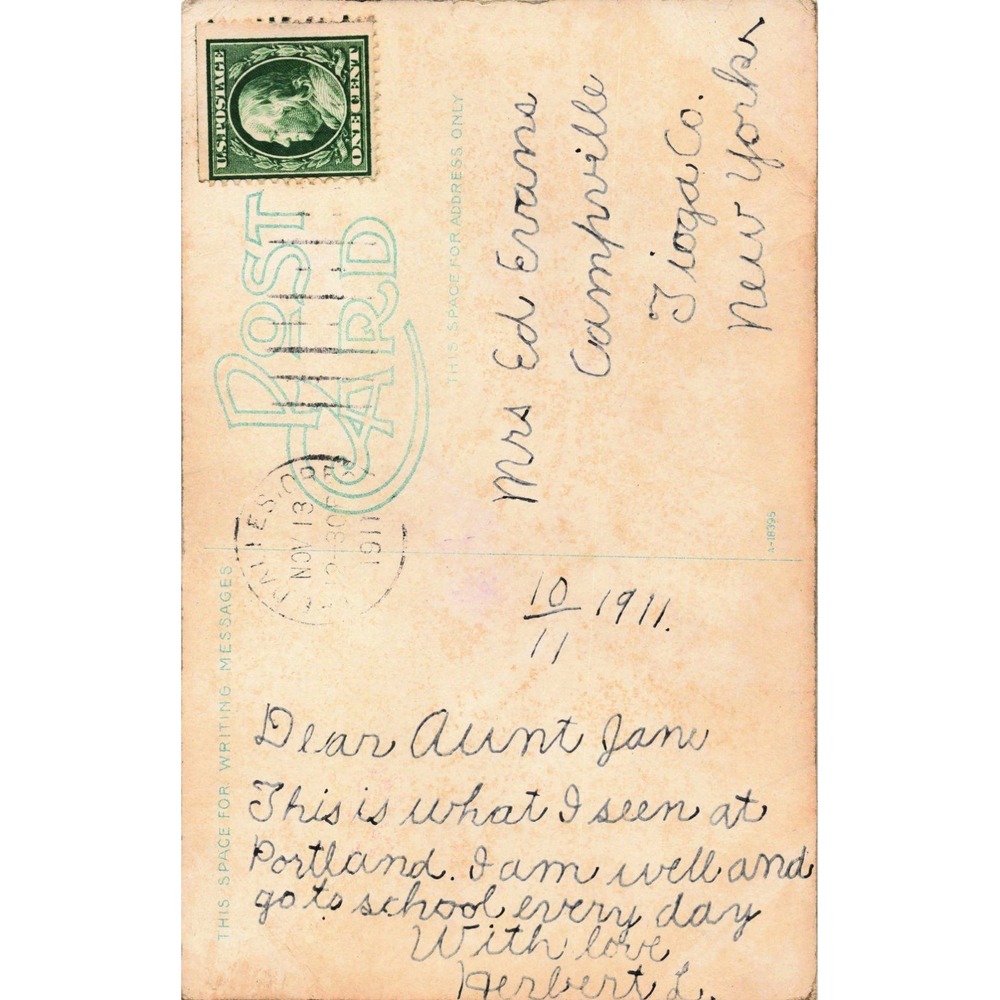 U.S. POSTAGE
ONE CENT
POST
CARD
ORE
NOV 13
1911
THIS SPACE FOR ADDRESS ONLY
Mrs Ed Evans
Campville
Tioga Co.
New York
A-18395
THIS SPACE FOR WRITING MESSAGES
10/11 1911.
Dear Aunt Jane
This is what I seen at
Portland. I am well and
go to school every day
With love
Herbert L.